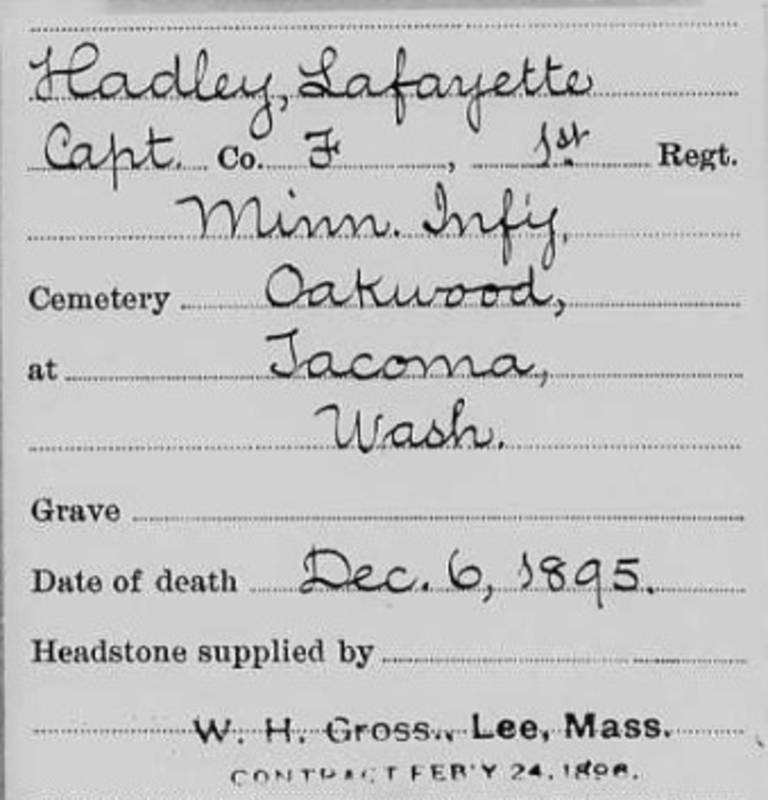 Hadley, Lafayette
Capt. Co. F, 1st Regt.
Minn. Inf'y,
Cemetery Oakwood,
at Tacoma,
Wash.
Grave
Date of death Dec. 6, 1895.
Headstone supplied by
W. H. Gross., Lee, Mass.
CONTRACT FEB'Y 24, 1896.